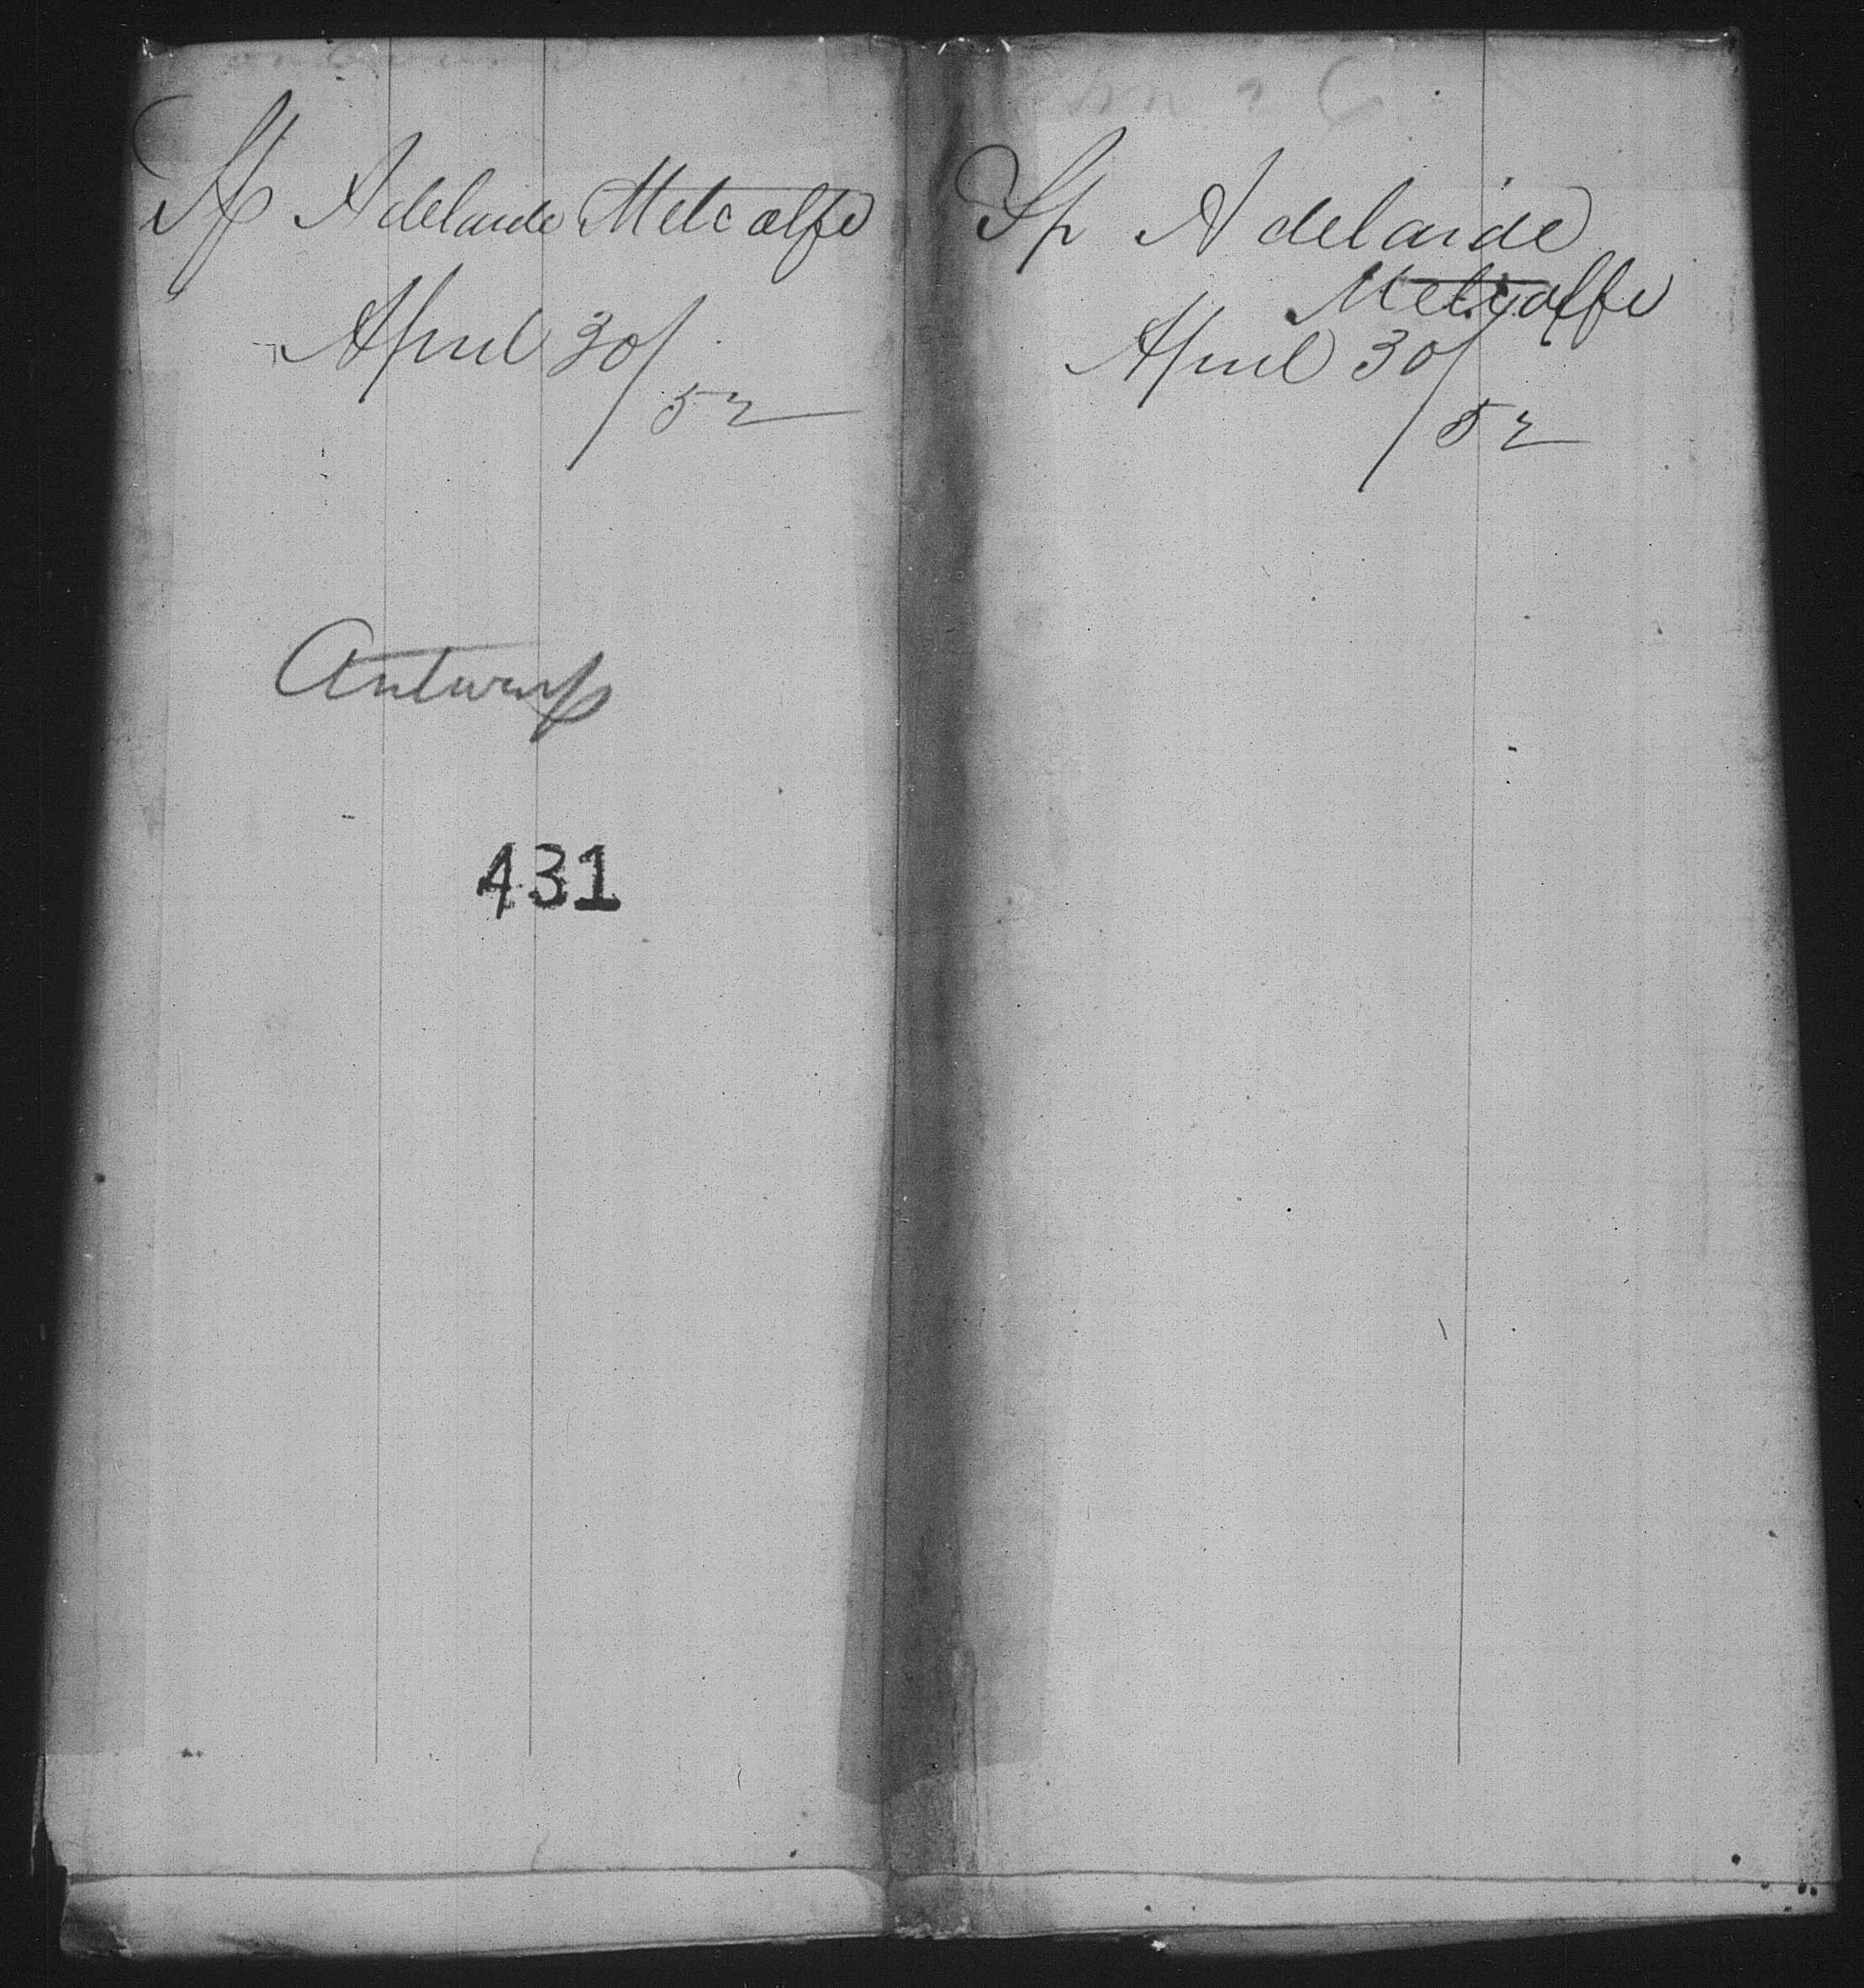 Sp Adelaide Metcalfe
April 30/
52
Antwerp
431
Sp Adelaide
Metcalfe
April 30/
52